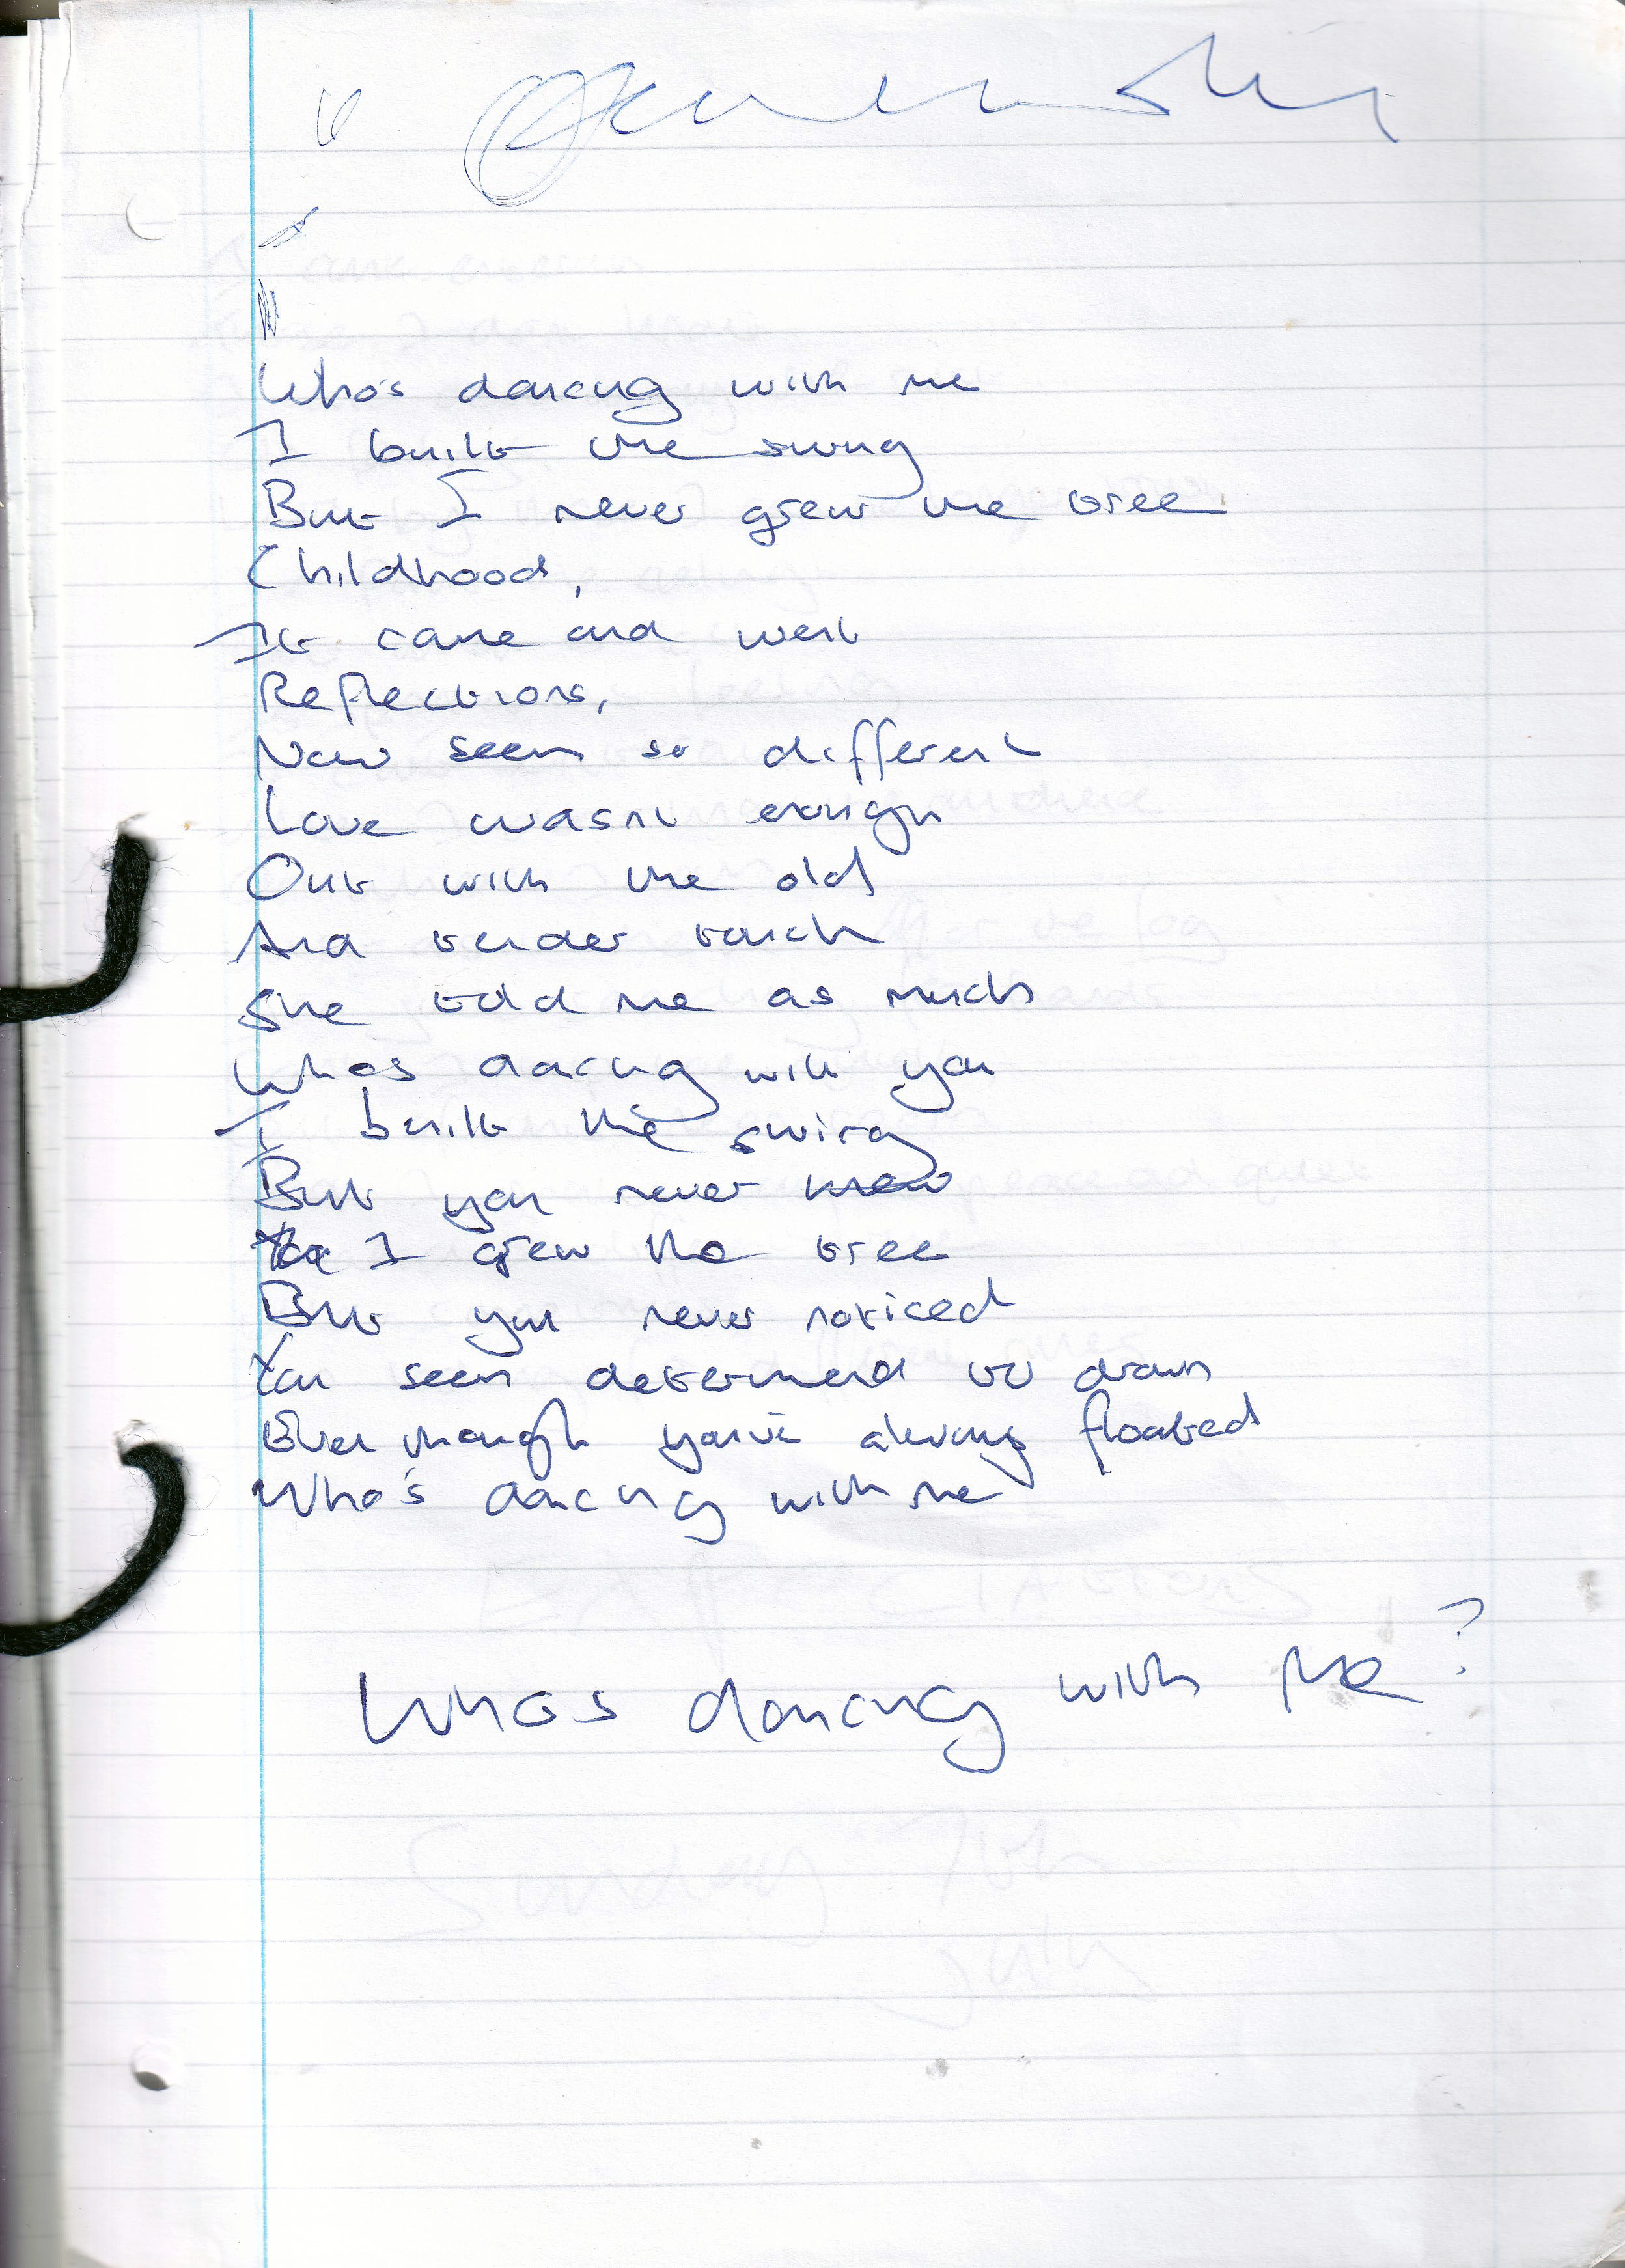 Who's dancing with me
I built the swing
But I never grew the tree
Childhood,
It came and went
Reflections,
Now seem so different
Love wasnt enough
Out with the old
And tender touch
She told me as much
Whos dancing with you
I built the swing
But you never knew
I grew the tree
But you never noticed
You seem determined to drown
Even though you've always floated
Who's dancing with me
Whos dancing with Me?
Sunday 7th
July